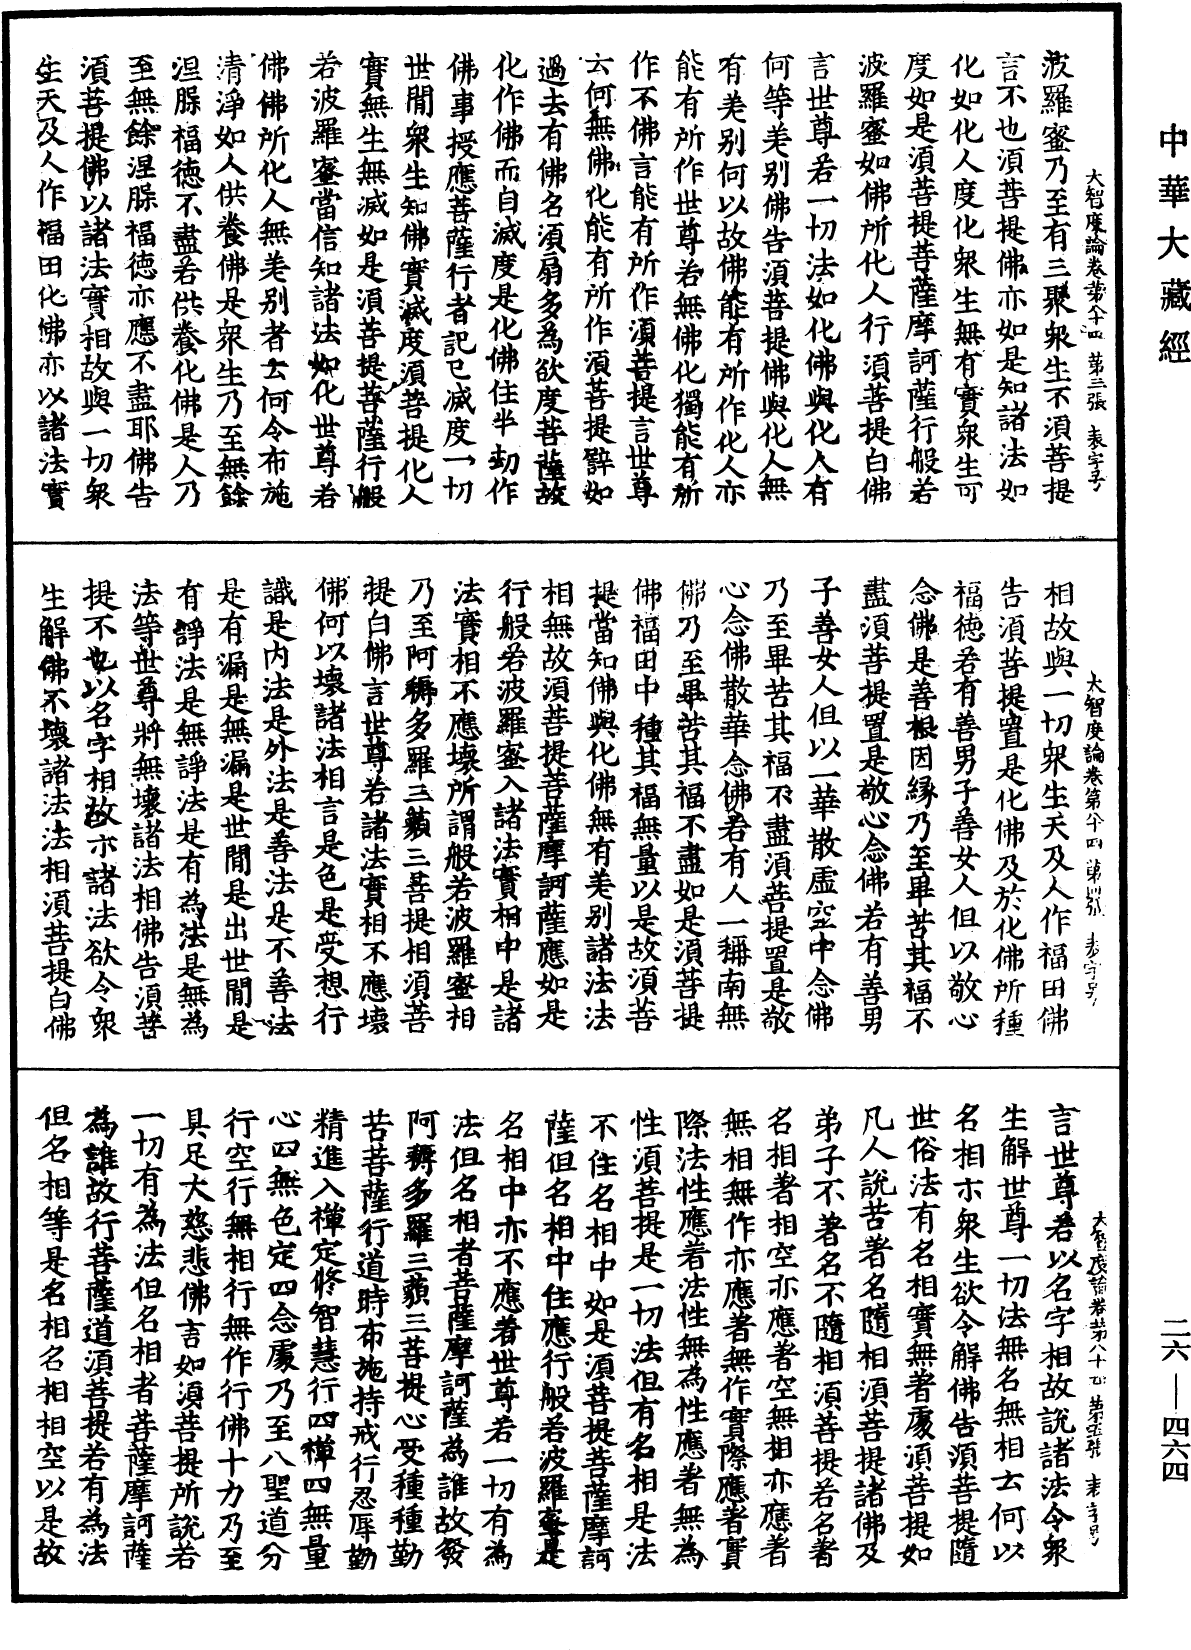 中華大藏經
大智度論卷第八十四 第三張 表字号
波羅蜜乃至有三聚衆生不須菩提
言不也須菩提佛亦如是知諸法如
化如化人度化衆生無有實衆生可
度如是須菩提菩薩摩訶薩行般若
波羅蜜如佛所化人行須菩提白佛
言世尊若一切法如化佛與化人有
何等差别佛告須菩提佛與化人無
有差别何以故佛能有所作化人亦
能有所作世尊若無佛化獨能有所
作不佛言能有所作須菩提言世尊
云何無佛化能有所作須菩提譬如
過去有佛名須扇多為欲度菩薩故
化作佛而自滅度是化佛住半劫作
佛事授應菩薩行者記已滅度一切
世間衆生知佛實滅度須菩提化人
實無生無滅如是須菩提菩薩行般
若波羅蜜當信知諸法如化世尊若
佛佛所化人無差别者云何令布施
清淨如人供養佛是衆生乃至無餘
涅脲福德不盡若供養化佛是人乃
至無餘涅脲福德亦應不盡耶佛告
須菩提佛以諸法實相故與一切衆
生天及人作福田化佛亦以諸法實
大智度論卷第八十四 第四張 表字号
相故與一切衆生天及人作福田佛
告須菩提置是化佛及於化佛所種
福德若有善男子善女人但以敬心
念佛是善根因緣乃至畢苦其福不
盡須菩提置是敬心念佛若有善男
子善女人但以一華散虛空中念佛
乃至畢苦其福不盡須菩提置是敬
心念佛散華念佛若有人一稱南無
佛乃至畢苦其福不盡如是須菩提
佛福田中種其福無量以是故須菩
提當知佛與化佛無有差别諸法法
相無故須菩提菩薩摩訶薩應如是
行般若波羅蜜入諸法實相中是諸
法實相不應壞所謂般若波羅蜜相
乃至阿耨多羅三藐三菩提相須菩
提白佛言世尊若諸法實相不應壞
佛何以壞諸法相言是色是受想行
識是内法是外法是善法是不善法
是有漏是無漏是世間是出世間是
有諍法是無諍法是有為法是無為
法等世尊將無壞諸法相佛告須菩
提不也以名字相故示諸法欲令衆
生解佛不壞諸法法相須菩提白佛
大智度論卷第八十四 第五張 表字号
言世尊若以名字相故說諸法令衆
生解世尊一切法無名無相云何以
名相示衆生欲令解佛告須菩提隨
世俗法有名相實無著處須菩提如
凡人說苦著名隨相須菩提諸佛及
弟子不著名不隨相須菩提若名著
名相著相空亦應著空無相亦應著
無相無作亦應著無作實際應著實
際法性應著法性無為性應著無為
性須菩提是一切法但有名相是法
不住名相中如是須菩提菩薩摩訶
薩但名相中住應行般若波羅蜜是
名相中亦不應著世尊若一切有為
法但名相者菩薩摩訶薩為誰故發
阿耨多羅三藐三菩提心受種種勤
苦菩薩行道時布施持戒行忍辱勤
精進入禪定修智慧行四禪四無量
心四無色定四念處乃至八聖道分
行空行無相行無作行佛十力乃至
具足大慈悲佛言如須菩提所說若
一切有為法但名相者菩薩摩訶薩
為誰故行菩薩道須菩提若有為法
但名相等是名相名相相空以是故
二六—四六四